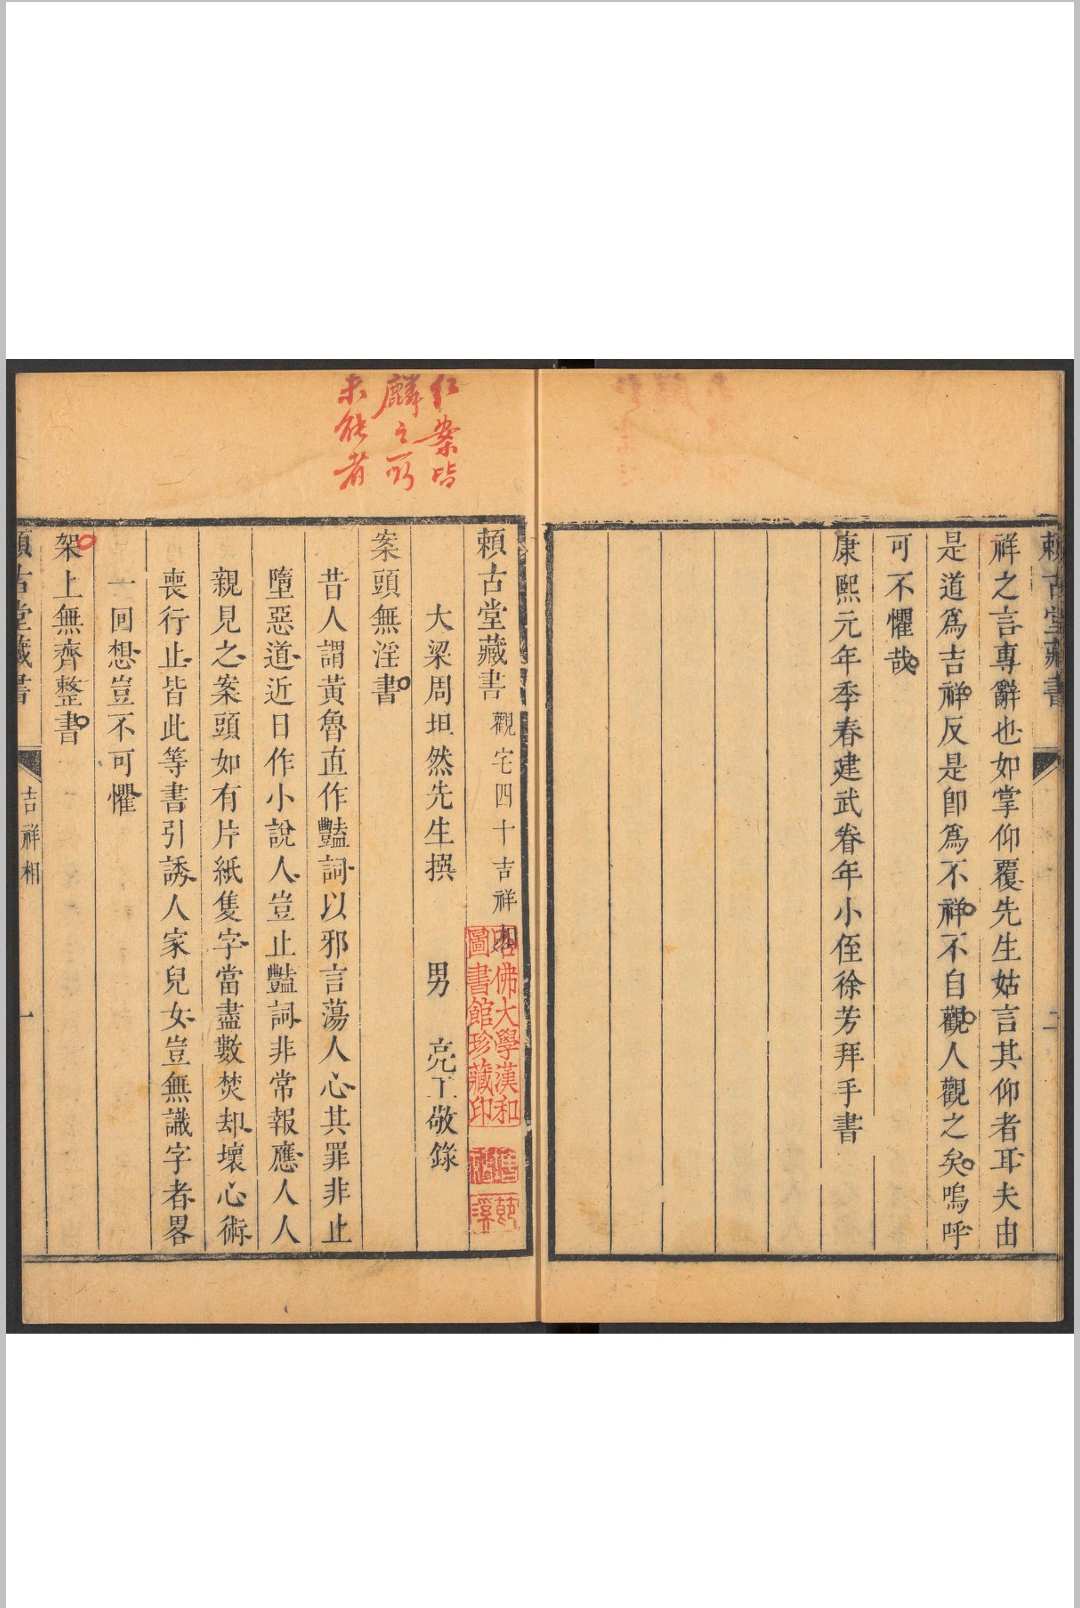 賴古堂藏書
二
祥之言專辭也如掌仰覆先生姑言其仰者耳夫由
是道為吉祥反是卽為不祥不自觀人觀之矣嗚呼
可不懼哉
康熙元年季春建武眷年小侄徐芳拜手書
賴古堂藏書 觀宅四十吉祥相
大梁周坦然先生撰 男 亮工敬錄
案頭無淫書
昔人謂黃魯直作豔詞以邪言蕩人心其罪非止
墮惡道近日作小說人豈止豔詞非常報應人人
親見之案頭如有片紙隻字當盡數焚却壞心術
喪行止皆此等書引誘人家兒女豈無識字者畧
一回想豈不可懼
架上無齊整書
賴古堂藏書
吉祥相
一
紅案皆
麟之所
未能者
哈佛大學漢和
圖書館珍藏印